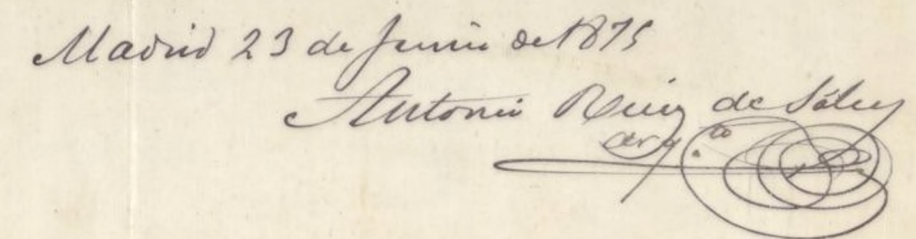 Madrid 23 de Junio de 1875
Antonio Ruiz de Sálces
Arq.to